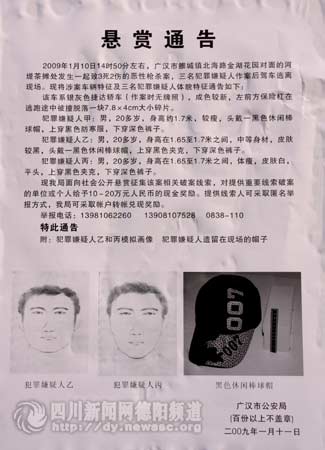 悬赏通告
2009年1月10日14时50分左右,广汉市雒城镇北海路金湖花园对面的河
堤茶摊处发生一起致3死2伤的恶性枪杀案,三名犯罪嫌疑人作案后驾车逃离
现场。现将涉案车辆特征及三名犯罪嫌疑人体貌特征通告如下:
该车系银灰色捷达轿车(作案时无牌照),成色较新,左前方保险杠在
逃跑途中被撞脱落一块7.8×4cm大小碎片。
犯罪嫌疑人甲:男,20多岁,身高约1.7米,较瘦,头戴一黑色休闲棒
球帽,上穿黑色防寒服,下穿深色裤子。
犯罪嫌疑人乙:男,20多岁,身高在1.65至1.7米之间,中等身材,皮肤
较黑,头戴一黑色休闲棒球帽,上穿黑色夹克,下穿深色裤子。
犯罪嫌疑人丙:男,20多岁,身高在1.65至1.7米之间,体瘦,皮肤白,
平头,上穿黑色夹克,下穿深色裤子。
现我局面向社会公开悬赏征集该案相关破案线索,对提供重要线索破案
的单位或个人给予10-20万元人民币的现金奖励。提供线索人可采取匿名举
报方式,我局可采取帐户转帐兑现奖励。
举报电话:13981062260 13908107528 0838-110
特此通告
附:犯罪嫌疑人乙和丙模拟画像 犯罪嫌疑人遗留在现场的帽子
007
007
犯罪嫌疑人乙
犯罪嫌疑人丙
黑色休闲棒球帽
广汉市公安局
(百份以上不盖章)
二00九年一月十一日
四川新闻网德阳频道
http://dy.newssc.org